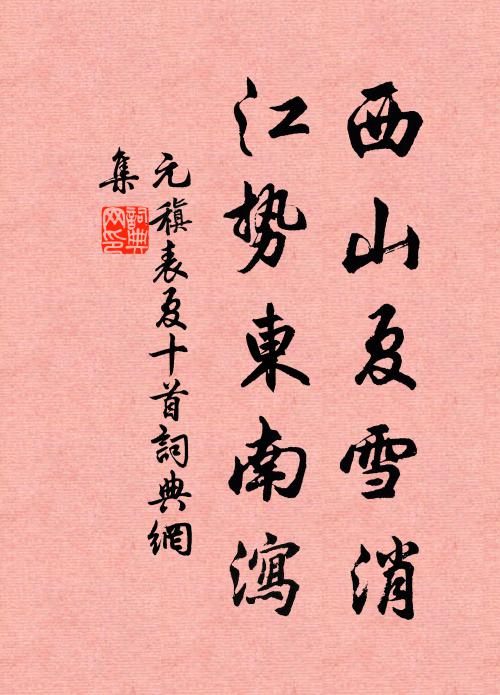 西山夏雪消
江势東南瀉
元稹表夏十首詞典網
集
詞典網印